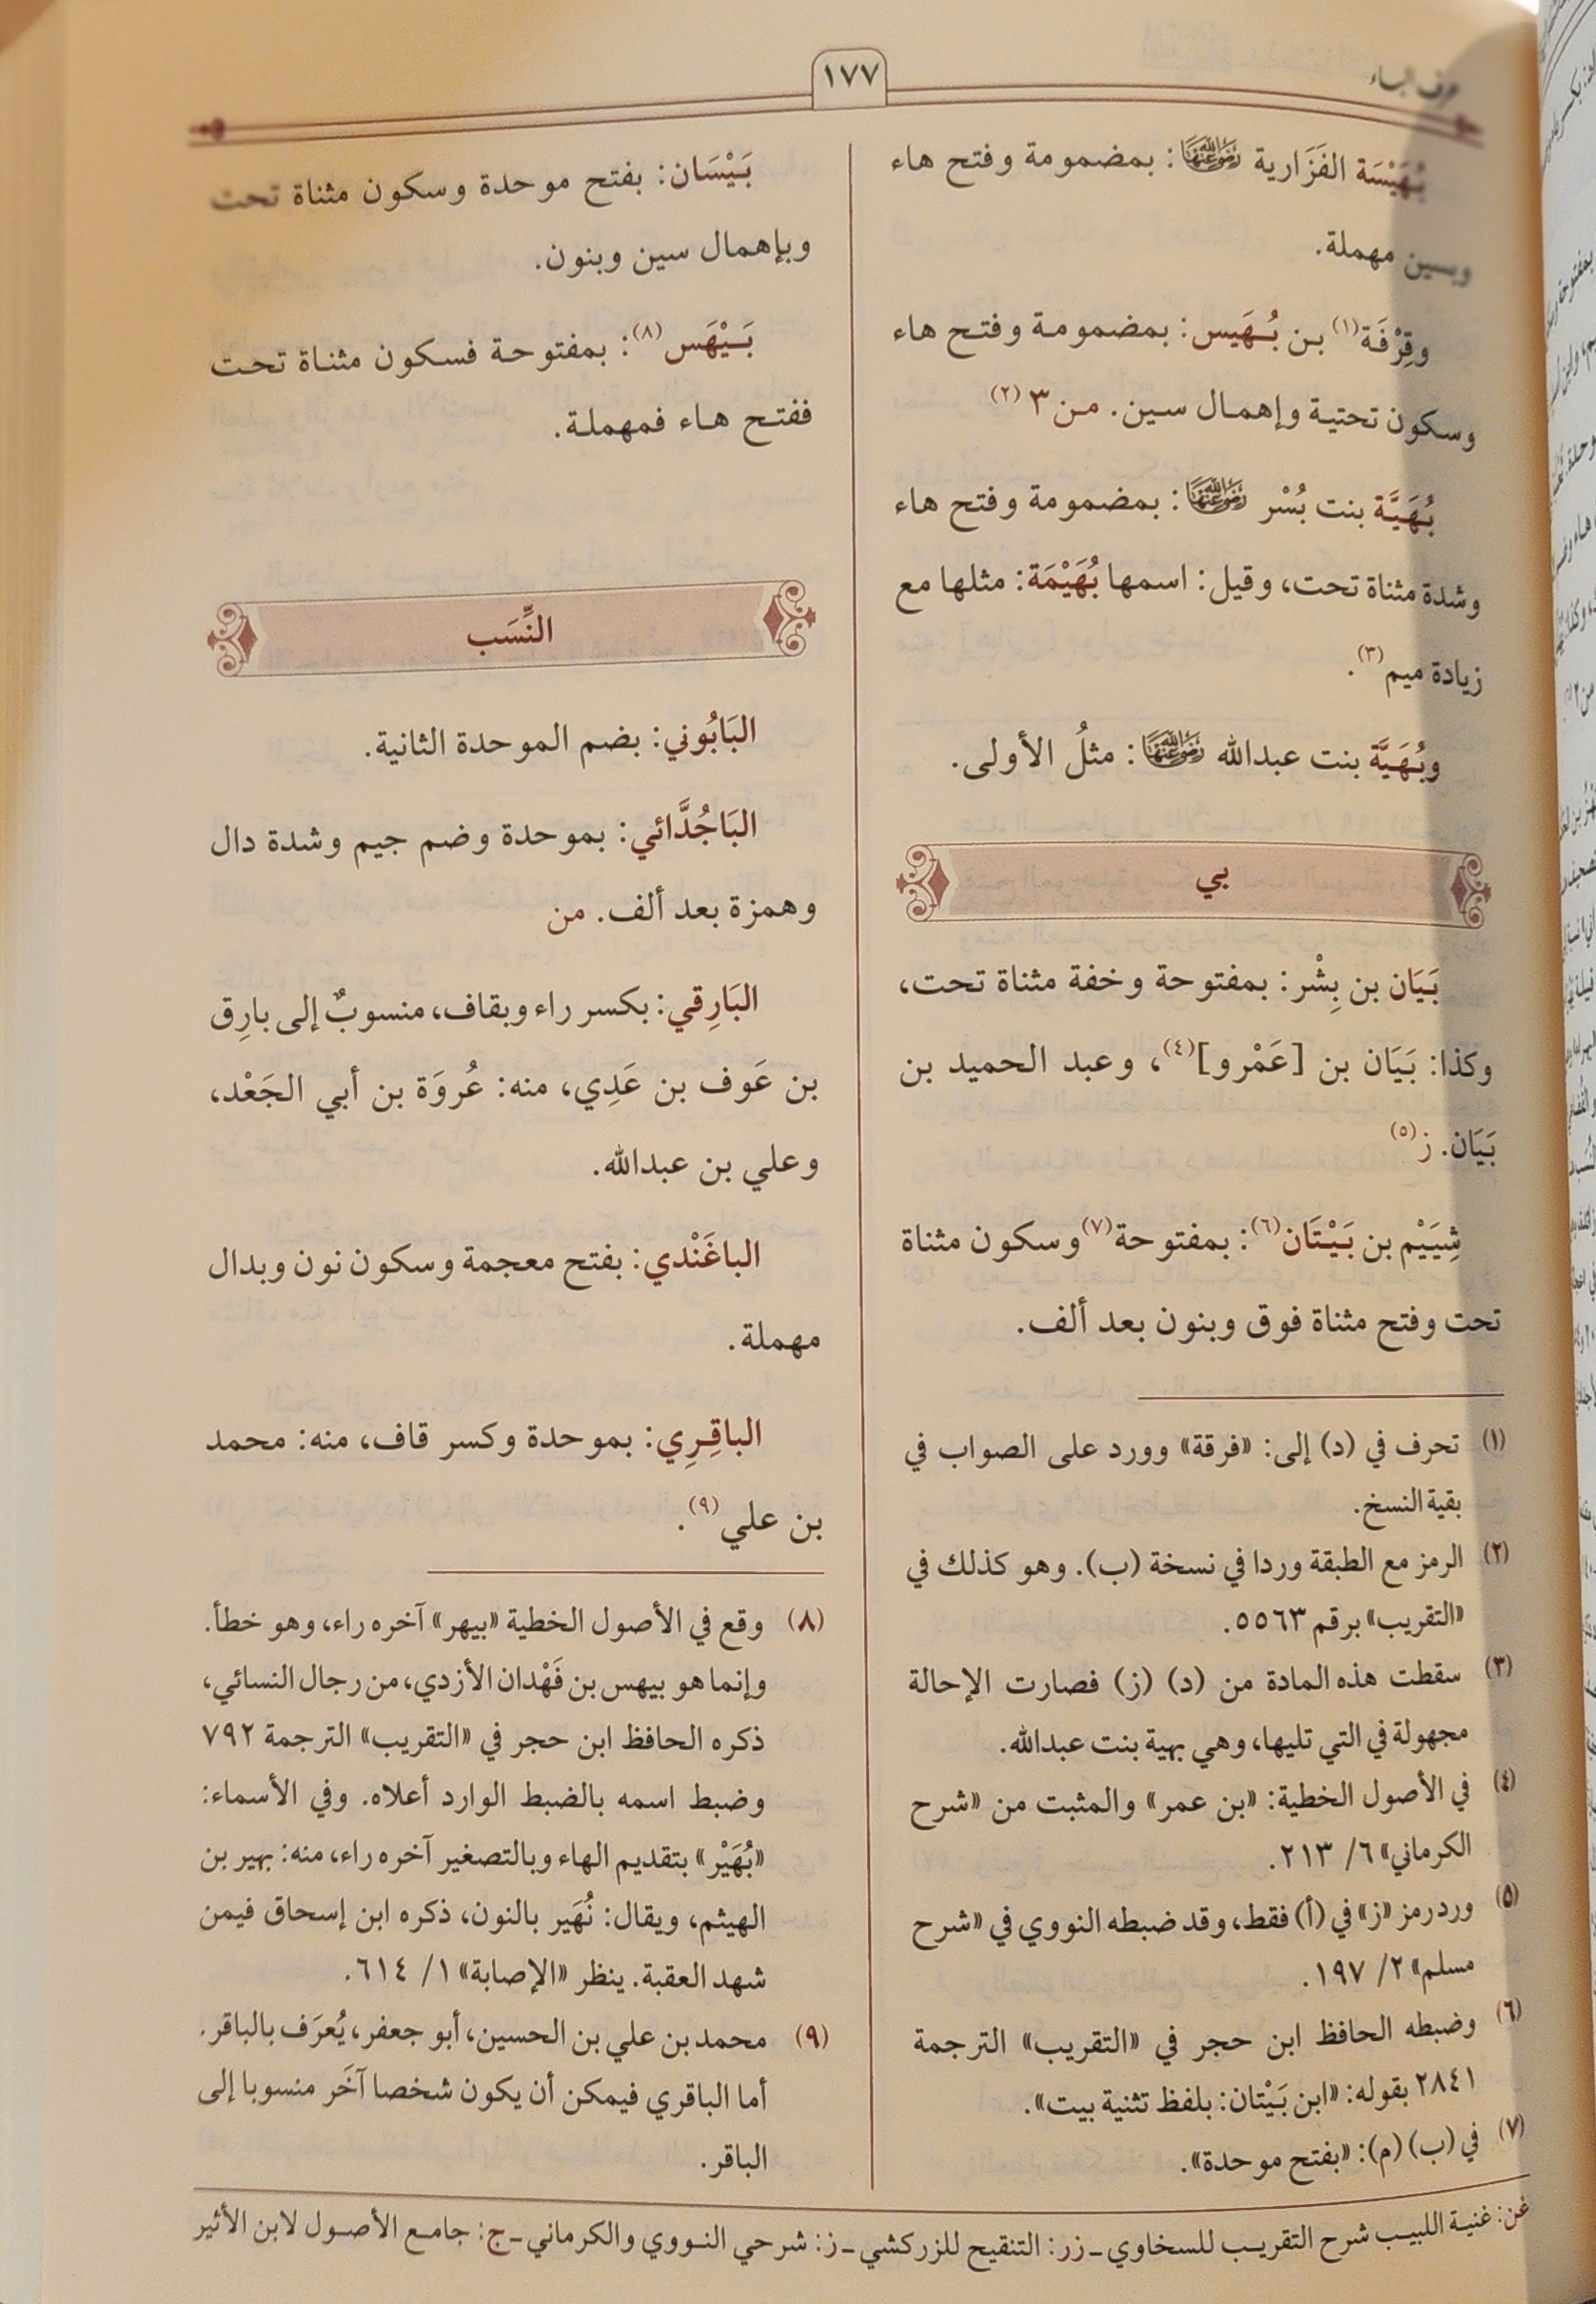 حرف الباء
١٧٧
بُهَيْسَة الفَزَارية رَضِيَ اللَّهُ عَنْهَا: بمضمومة وفتح هاء
وبسين مهملة.
وقِرْفَة(١) بن بُهَيس: بمضمومة وفتح هاء
وسكون تحتية وإهمال سين. من ٣ (٢)
بُهَيَّة بنت بُسْر رَضِيَ اللَّهُ عَنْهَا: بمضمومة وفتح هاء
وشدة مثناة تحت، وقيل: اسمها بُهَيْمَة: مثلها مع
زيادة ميم(٣).
وبُهَيَّة بنت عبدالله رَضِيَ اللَّهُ عَنْهَا: مثلُ الأولى.
بي
بَيَان بن بِشْر: بمفتوحة وخفة مثناة تحت،
وكذا: بَيَان بن [عَمْرو](٤)، وعبد الحميد بن
بَيَان. ز(٥)
شِيَيْم بن بَيْتَان(٦): بمفتوحة(٧) وسكون مثناة
تحت وفتح مثناة فوق وبنون بعد ألف.
(١) تحرف في (د) إلى: «فرقة» وورد على الصواب في
بقية النسخ.
(٢) الرمز مع الطبقة وردا في نسخة (ب). وهو كذلك في
«التقريب» برقم ٥٥٦٣.
(٣) سقطت هذه المادة من (د) (ز) فصارت الإحالة
مجهولة في التي تليها، وهي بهية بنت عبدالله.
(٤) في الأصول الخطية: «بن عمر» والمثبت من «شرح
الكرماني» ٦/ ٢١٣.
(٥) ورد رمز «ز» في (أ) فقط، وقد ضبطه النووي في «شرح
مسلم» ٢/ ١٩٧.
(٦) وضبطه الحافظ ابن حجر في «التقريب» الترجمة
٢٨٤١ بقوله: «ابن بَيْتان: بلفظ تثنية بيت».
(٧) في (ب) (م): «بفتح موحدة».
بَيْسَان: بفتح موحدة وسكون مثناة تحت
وبإهمال سين وبنون.
بَيْهَس(٨): بمفتوحة فسكون مثناة تحت
ففتح هاء فمهملة.
النِّسَب
البَابُوني: بضم الموحدة الثانية.
البَاجُدَّائي: بموحدة وضم جيم وشدة دال
وهمزة بعد ألف. من
البَارِقي: بكسر راء وبقاف، منسوبٌ إلى بارِق
بن عَوف بن عَدِي، منه: عُروَة بن أبي الجَعْد،
وعلي بن عبدالله.
الباغَنْدي: بفتح معجمة وسكون نون وبدال
مهملة.
الباقِرِي: بموحدة وكسر قاف، منه: محمد
بن علي(٩).
(٨) وقع في الأصول الخطية «بيهر» آخره راء، وهو خطأ.
وإنما هو بيهس بن فَهْدان الأزدي، من رجال النسائي،
ذكره الحافظ ابن حجر في «التقريب» الترجمة ٧٩٢
وضبط اسمه بالضبط الوارد أعلاه. وفي الأسماء:
«بُهَيْر» بتقديم الهاء وبالتصغير آخره راء، منه: بهير بن
الهيثم، ويقال: نُهَير بالنون، ذكره ابن إسحاق فيمن
شهد العقبة. ينظر «الإصابة» ١/ ٦١٤.
(٩) محمد بن علي بن الحسين، أبو جعفر، يُعرَف بالباقر.
أما الباقري فيمكن أن يكون شخصا آخَر منسوبا إلى
الباقر.
غن: غنية اللبيب شرح التقريب للسخاوي ـ زر: التنقيح للزركشي ـ ز: شرحي النووي والكرماني ـ ج: جامع الأصول لابن الأثير